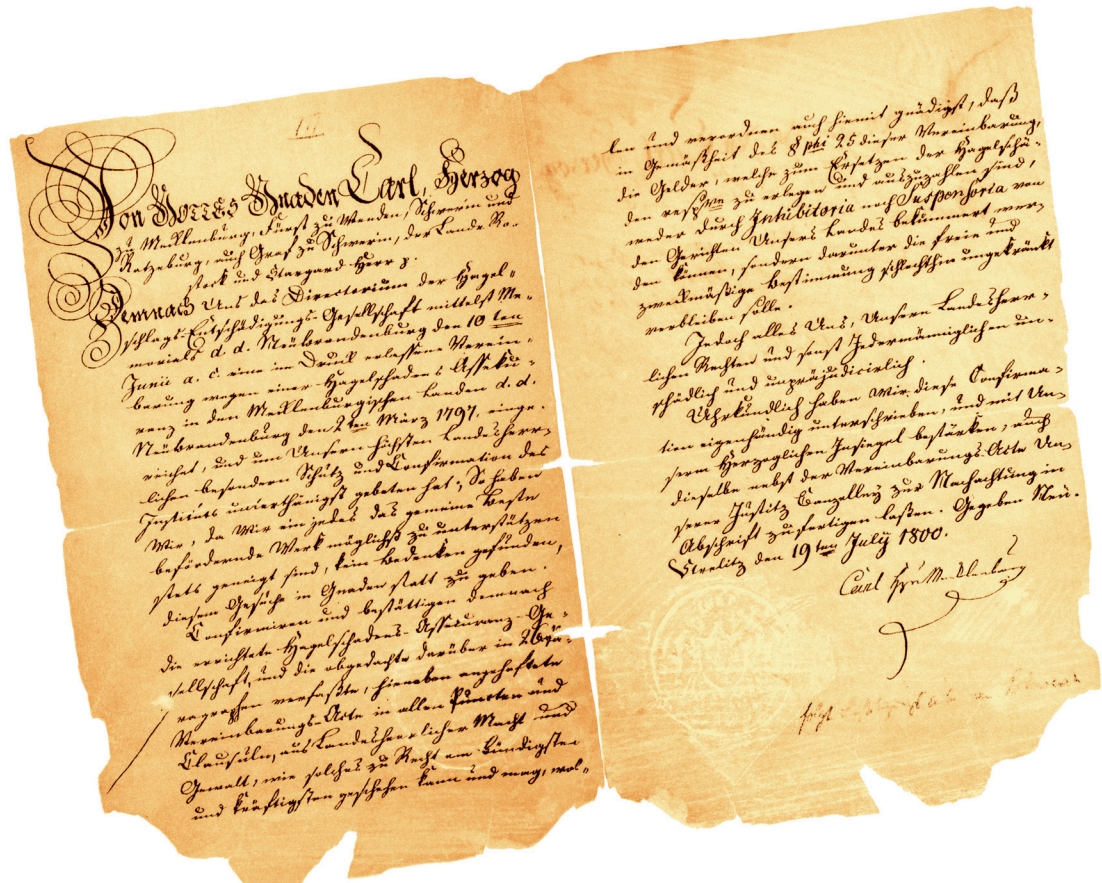 Von Gottes Gnaden Carl, Herzog
zu Mecklenburg, Fürst zu Wenden, Schwerin und
Ratzeburg, auch Graf zu Schwerin, der Lande Ro-
stock und Stargard Herr p.
Demnach Uns das Directorium der Hagel-
schlags-Entschädigungs-Gesellschaft mittelst Me-
morials d. d. Neubrandenburg den 10ten
Junii a. c. eine im Druck erlassene Verein-
barung wegen einer Hagelschadens Asseku-
renz in den Mecklenburgischen Landen d. d.
Neubrandenburg den 2ten März 1797. einge-
reichet, und um Unsern höchsten Landesherr-
lichen besondern Schutz und Confirmation des
Instituts unterthänigst gebeten hat; So haben
Wir, da Wir ein jedes das gemeine Beste
befördernde Werk möglichst zu unterstützen
stets geneigt sind, kein Bedenken gefunden,
diesem Gesuche in Gnaden statt zu geben.
Confirmiren und bestättigen demnach
die errichtete Hagelschadens-Assecuranz-Ge-
sellschaft, und die obgedachte darüber in 26 Pa-
ragraphen verfaßte, hieneben angeheftete
Vereinbarungs-Acte in allen Puncten und
Clausuln, aus Landesherrlicher Macht und
Gewalt, wie solches zu Recht am bündigsten
und kräftigsten geschehen kann und mag, wol-
len und verordnen auch hiemit gnädigst, daß
in Gemäßheit des §phi 25 dieser Vereinbarung,
die Gelder, welche zum Ersetzen der Hagelschä-
den resp. zu erlegen und auszuzahlen sind,
weder durch Inhibitoria noch Suspensoria von
den Gerichten Unsers Landes bekümmert wer-
den können, sondern darunter die freie und
zweckmäßige Bestimmung schlechthin ungekränkt
verbleiben solle.
Jedoch alles Uns, Unsern Landesherr-
lichen Rechten und sonst Jedermänniglichen un-
schädlich und unpräjudicirlich.
Uhrkundlich haben Wir diese Confirma-
tion eigenhändig unterschrieben, und mit Un-
serm Herzoglichen Insiegel bestärken, auch
dieselbe nebst der Vereinbarungs-Acte Un-
serer Justitz Canzelley zur Nachachtung in
Abschrift zufertigen laßen. Gegeben Neu-
Strelitz den 19ten July 1800.
Carl HzuMecklenburg